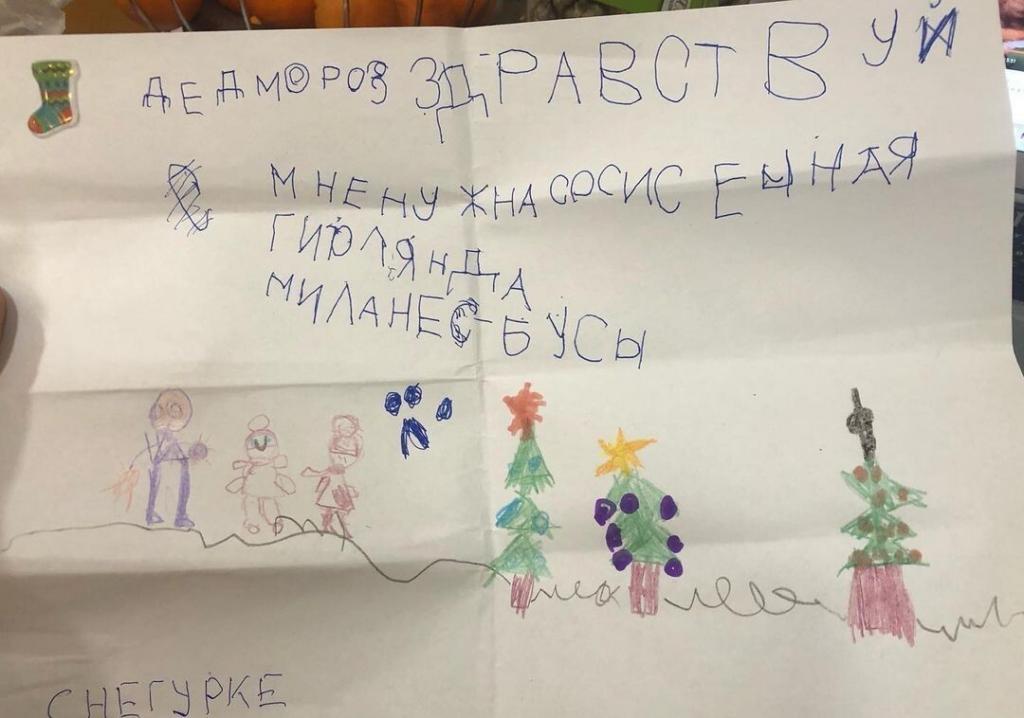 ДЕДМОРОЗ ЗДРАВСТВУЙ
МНЕНУЖНАСОСИСЕЧНАЯ
ГИРЛЯНДА
МИЛАНЕС-БУСЫ
СНЕГУРКЕ